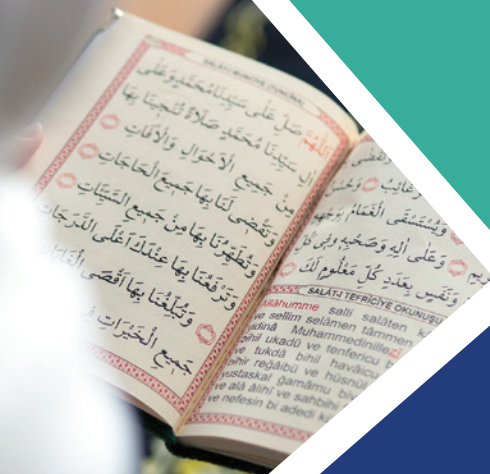 SALÂT-I MÜNCİYE
اَللّٰهُمَّ صَلِّ عَلَى سَيِّدِنَا مُحَمَّدٍ وَعَلَى
اٰلِ سَيِّدِنَا مُحَمَّدٍ صَلَاةً تُنْجِينَا بِهَا
مِنْ جَمِيعِ الْاَحْوَالِ وَالْاٰفَاتِ
وَتَقْضِى لَنَا بِهَا جَمِيعَ الْحَاجَاتِ
وَتُطَهِّرُنَا بِهَا مِنْ جَمِيعِ السَّيِّئَاتِ
وَتَرْفَعُنَا بِهَا عِنْدَكَ اَعْلَى الدَّرَجَاتِ
وَتُبَلِّغُنَا بِهَا اَقْصَى
جَمِيعِ الْخَيْرَاتِ
وَيُسْتَسْقَى الْغَمَامُ بِوَجْهِهِ
وَعَلَى اٰلِهِ وَصَحْبِهِ فِى كُلِّ
وَنَفَسٍ بِعَدَدِ كُلِّ مَعْلُومٍ لَكَ
SALÂT-I TEFRİCİYE OKUNUŞU
Allâhumme salli salâten
ve sellim selâmen tâmmen
Muhammedinillezî
bihil ukadü ve tenfericu
ve tukdâ bihil havâicu
bihir reğâibü ve hüsnül
yustaskal ğamâmu
ve alâ âlihî ve sahbihî
ve nefesin bi adedi